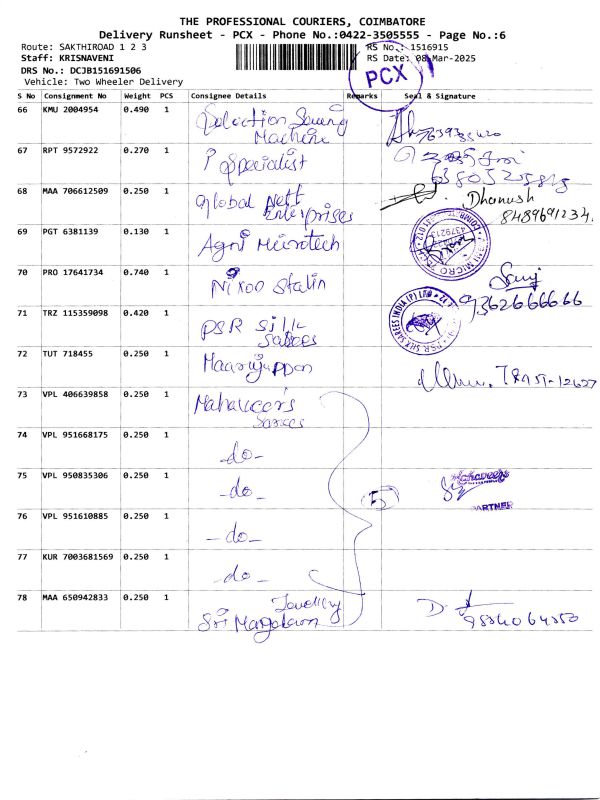 THE PROFESSIONAL COURIERS, COIMBATORE
Delivery Runsheet - PCX - Phone No.:0422-3505555 - Page No.:6
Route: SAKTHIROAD 1 2 3
RS No.: 1516915
Staff: KRISNAVENI
RS Date: 08-Mar-2025
DRS No.: DCJB151691506
Vehicle: Two Wheeler Delivery
PCX
S No Consignment No Weight PCS Consignee Details Remarks Seal & Signature
66 KMU 2004954 0.490 1 Selection Sewing
Machine
67 RPT 9572922 0.270 1 i specialist
68 MAA 706612509 0.250 1 Global Nett
Enterprises
Dhanush
8489691234.
69 PGT 6381139 0.130 1 Agni Microtech
70 PRO 17641734 0.740 1 Nixoo Stalin
9362666666
71 TRZ 115359098 0.420 1 PSR Silk
Sarees
PSR SILK SAREES INDIA (P) LTD
72 TUT 718455 0.250 1
73 VPL 406639858 0.250 1 Mahaveer's
Sarees
74 VPL 951668175 0.250 1 -do-
75 VPL 950835306 0.250 1 -do-
5
Mahaveer's
PARTNER
76 VPL 951610885 0.250 1 -do-
77 KUR 7003681569 0.250 1 -do-
78 MAA 650942833 0.250 1 Jewellery
Sri